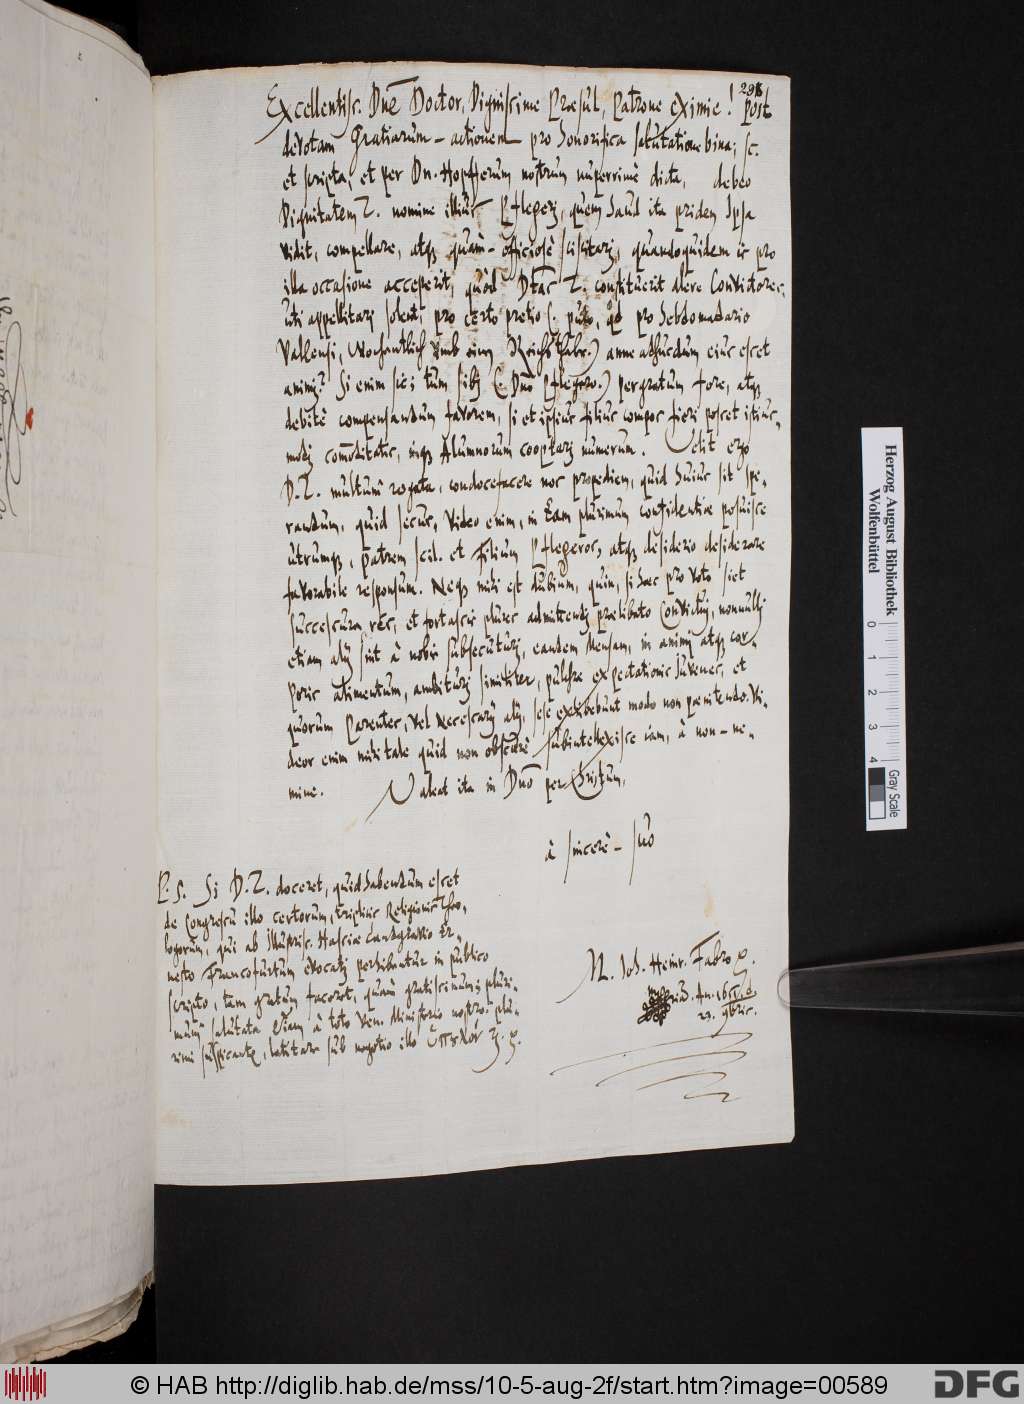 298
Excellentiss. Dnē Doctor, Dignissime Præsul, Patrone eximie! Post
devotam Gratiarum-actionem pro honorifica salutatione bina; sc.
et scripta, et per Dn. Hopfferum nostrum nuperrimè dicta, debeo
Dignitatem T. nomine illius Pflegerj, quem haud ita pridem Ipsa
vidit, compellare, atq; quàm-officiosè sciscitarj, quandoquidem is pro
illa occasione acceperit, quòd Dtas T. constituerit alere Convictores,
uti appellitarj solent, pro certo pretio (: puto, qd pro hebdomadario
Vallensi, Wochentlich umb einen Reichsthlr.) anne adhucdum ejus esset
animj? Si enim sic; tum sibj (: Dnō Pflegero.) pergratum fore, atq;
debitè compensandum favorem, si et ipsius filius compos fieri posset istius-
modj commoditatis, inq; Alumnorum cooptarj numerum. Velit ergo
D. T. multùm rogata, condocefacere nos propediem, quid hujus sit spe-
randum, quid secus, video enim, in Eam plurimum confidentiæ posuisse
utrumq;, patrem scil. et Filium Pflegeros, atq; desiderio desiderare
favorabile responsum. Neq; mihi est dubium, quin, si hæc pro voto siet
successura res, et fortassis plures admittendj prælibato Convictuj, nonnullj
etiam alij sint à nobis subsecuturj, eandem Mensam, in animj atq; cor-
poris alimentum, ambiturj similiter, pulchræ expectationis Juvenes, et
quorum Parentes, vel Necessarij alij, sese exhibebunt modo non pœnitendo. Vi-
deor enim mihi tale quid non obscurè subintellexisse jam, à non-ne-
mine. Valeat ita in Dnō per Christum,
à sincerè-suo
M. Joh. Heinr. Fabro
An. 16
23. 9bris.
P. S. Si D. T. doceret, quid habendum esset
de Congressu illo certorum, triplicis Religionis Theo-
logorum, qui ab Illustriss. Hassiæ Landgravio Er-
nesto Francofurtum evocatj perhibentur in publico
scripto, tam gratum faceret, quàm gratissimum; pluri-
mùm salutata etiam à toto Ven. Ministerio nostro. plu-
rimi suspicantr, latitare sub negotio illo